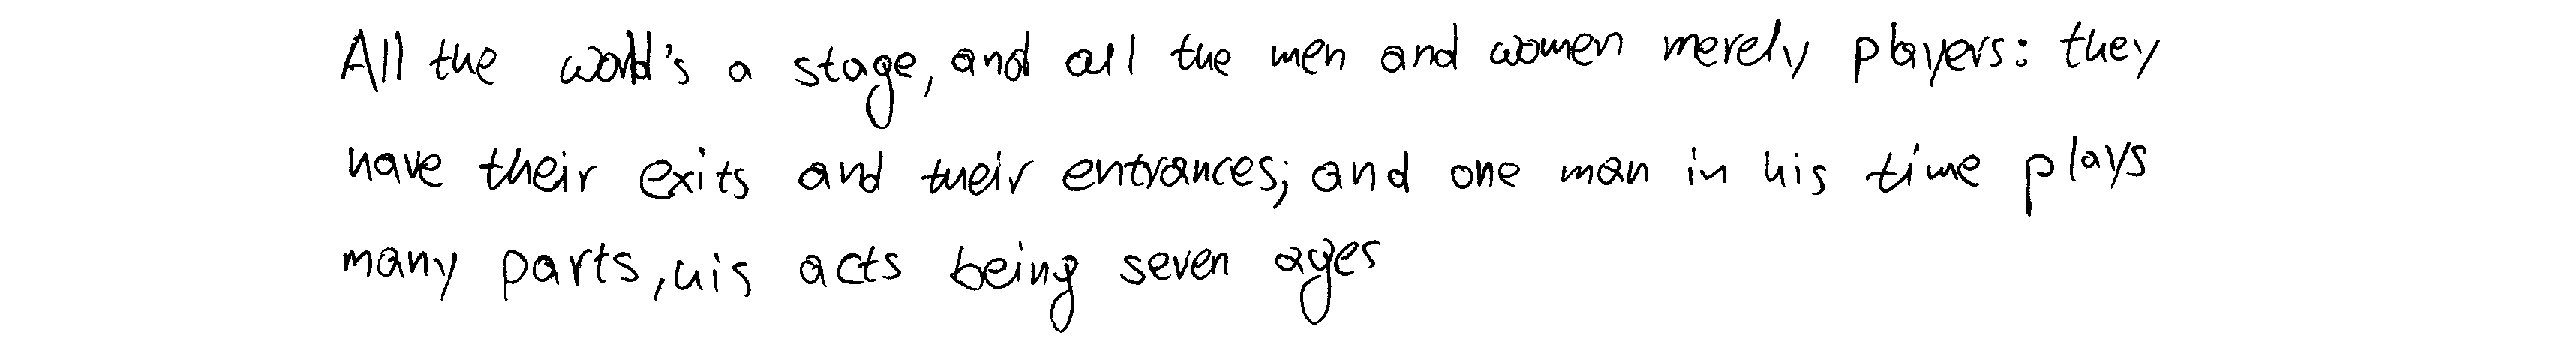 All the world's a stage, and all the men and women merely players: they
have their exits and their entrances; and one man in his time plays
many parts, his acts being seven ages